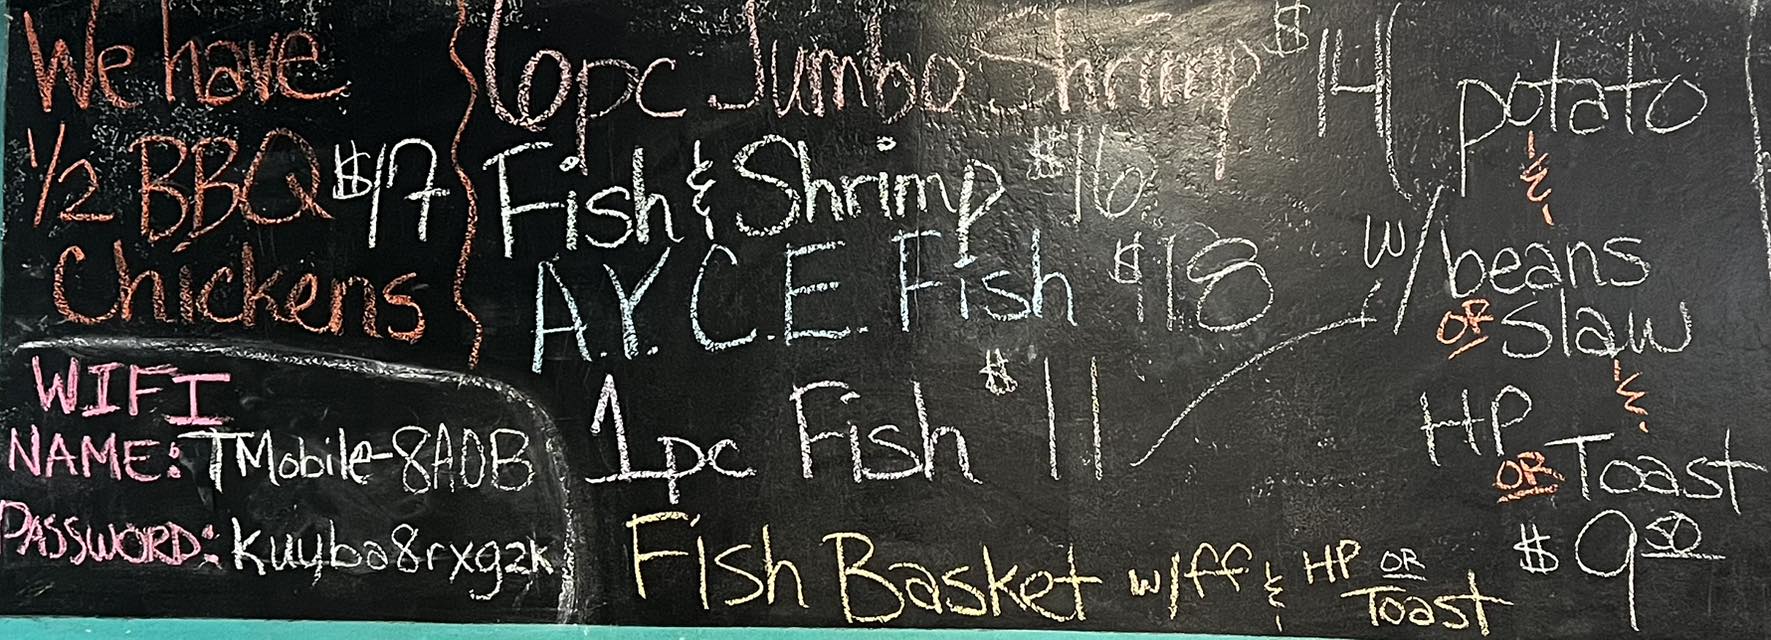 We have
1/2 BBQ $17
Chickens
6pc Jumbo Shrimp $14
Fish & Shrimp $16
A.Y.C.E. Fish $18
1pc Fish $11
potato
&
w/beans
OR Slaw
&
HP
OR Toast
Fish Basket w/ff & HP OR Toast $9.50
WIFI
NAME: TMobile-8A0B
PASSWORD: kuyba8rxgzk